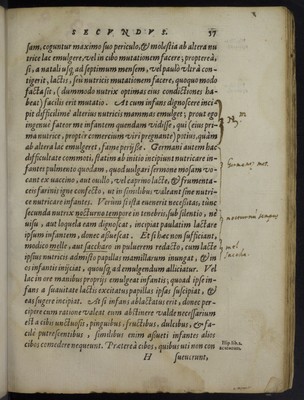 SECVNDVS. 57
sam, coguntur maximo suo periculo, & molestia ab altera nu
trice lac emulgere, vel in cibo mutationem facere; propterea,
si, a natali usq; ad septimum mensem, vel paulò vltrà con-
tigerit, lactis, seu nutricis mutationem facere, quoquo modo
facta sit, (dummodo nutrix optimas eius conditiones ha-
beat) facilis erit mutatio. At cum infans dignoscere inci
pit difficilime alterius nutricis mammas emulget; prout ego
ingenuè fateor me infantem quendam vidisse, qui (eius pri-
ma nutrice, proptèr commercium viri pregnante) potius, quàm
ab altera lac emulgeret, fame perijsse. Germani autem hac
difficultate commoti, statim ab initio incipiunt nutricare in-
fantes pulmento quodam, quod vulgari sermone mosam vo-
cant ex vaccino, aut ouillo, vel caprino lacte, & frumenta-
cei farinis igne confecto, ut in similibus valeant sine nutri-
ce nutricare infantes. Verùm si ista euenerit necessitas, tunc
secunda nutrix nocturno tempore in tenebris, sub silentio, nè
uisu, aut loquela eam dignoscat, incipiat paulatim lactare
ipsum infantem, donec assuescat. Et si hæc non sufficiant,
modico melle, aut saccharo in puluerem redacto, cum lacte
ipsius nutricis admisto papillas mamillarum inungat, & in
os infantis inijciat, quousq; ad emulgendum alliciatur. Vel
lac in ore manibus proprijs emulgeat infantis; quoad ipse in-
fans a suauitate lactis excitatus papillas ipsas suscipiat, &
eas sugere incipiat. At si infans ablactatus erit, donec per-
cipere cum ratione valeat eum abstinere valdè necessarium
est a cibis unctuosis, pinguibus, fructibus, dulcibus, & fa-
cilè putrescentibus, similibus enim assueti infantes alios
cibos comedere nequeunt. Præterea cibos, quibus uti non con
H sueuerunt,
nocturnum tempus
mel